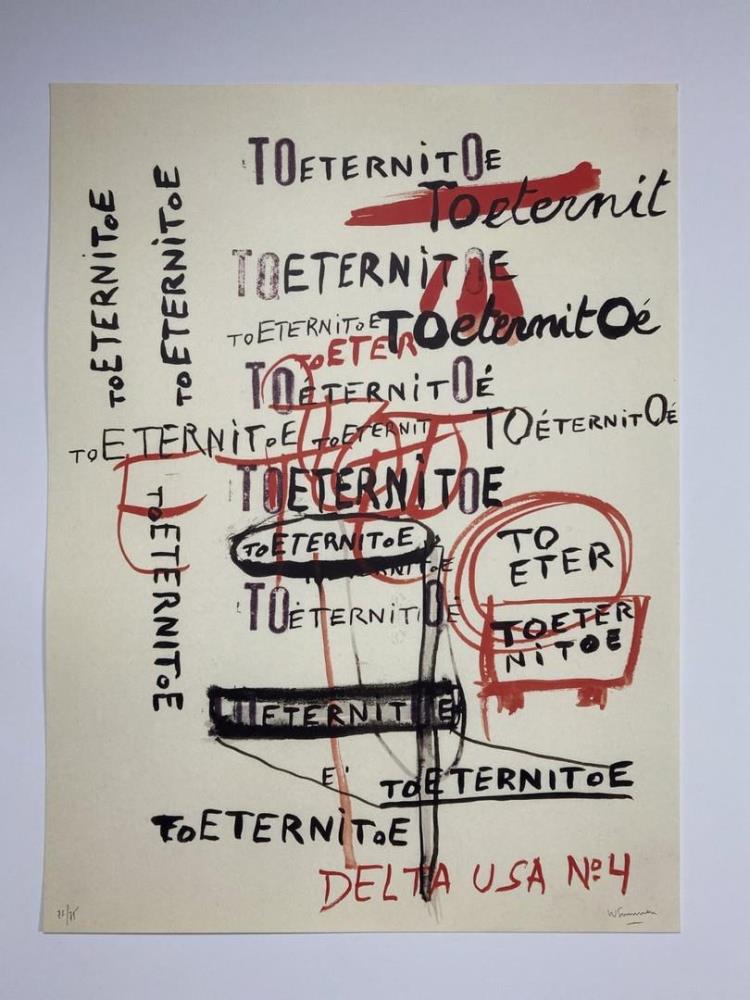 TOETERNiTOE
Toeternit
TOETERNiTOE
TOETERNiToE
TOeternitOé
TOETER
TOÉTERNiTOÉ
ToETERNiToE
ToETERNIT
TOÉTERNiTOÉ
TOETERNiTOE
ToETERNiToE
TOÉTERNiTOÉ
TO
ETER
TOETER
NiTOE
ToETERNiToE
ToETERNiToE
ToETERNiToE
ETERNIT
E
ToETERNiToE
ToETERNiToE
DELTA USA No 4